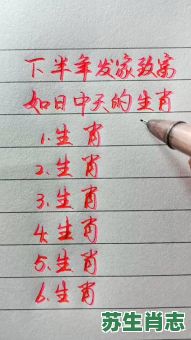 下半年发家致富
如日中天的生肖
1.生肖
2.生肖
3.生肖
4.生肖
5.生肖
6.生肖
苏生肖志